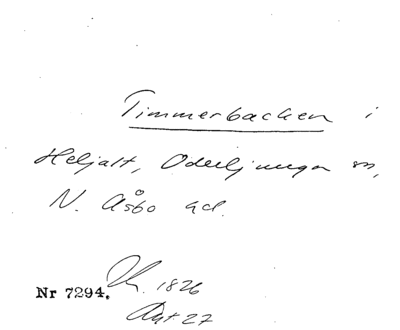 Timmerbacken i
Heljalt, Oderljunga sn,
N. Åsbo hd.
Nr 7294. 1826
27